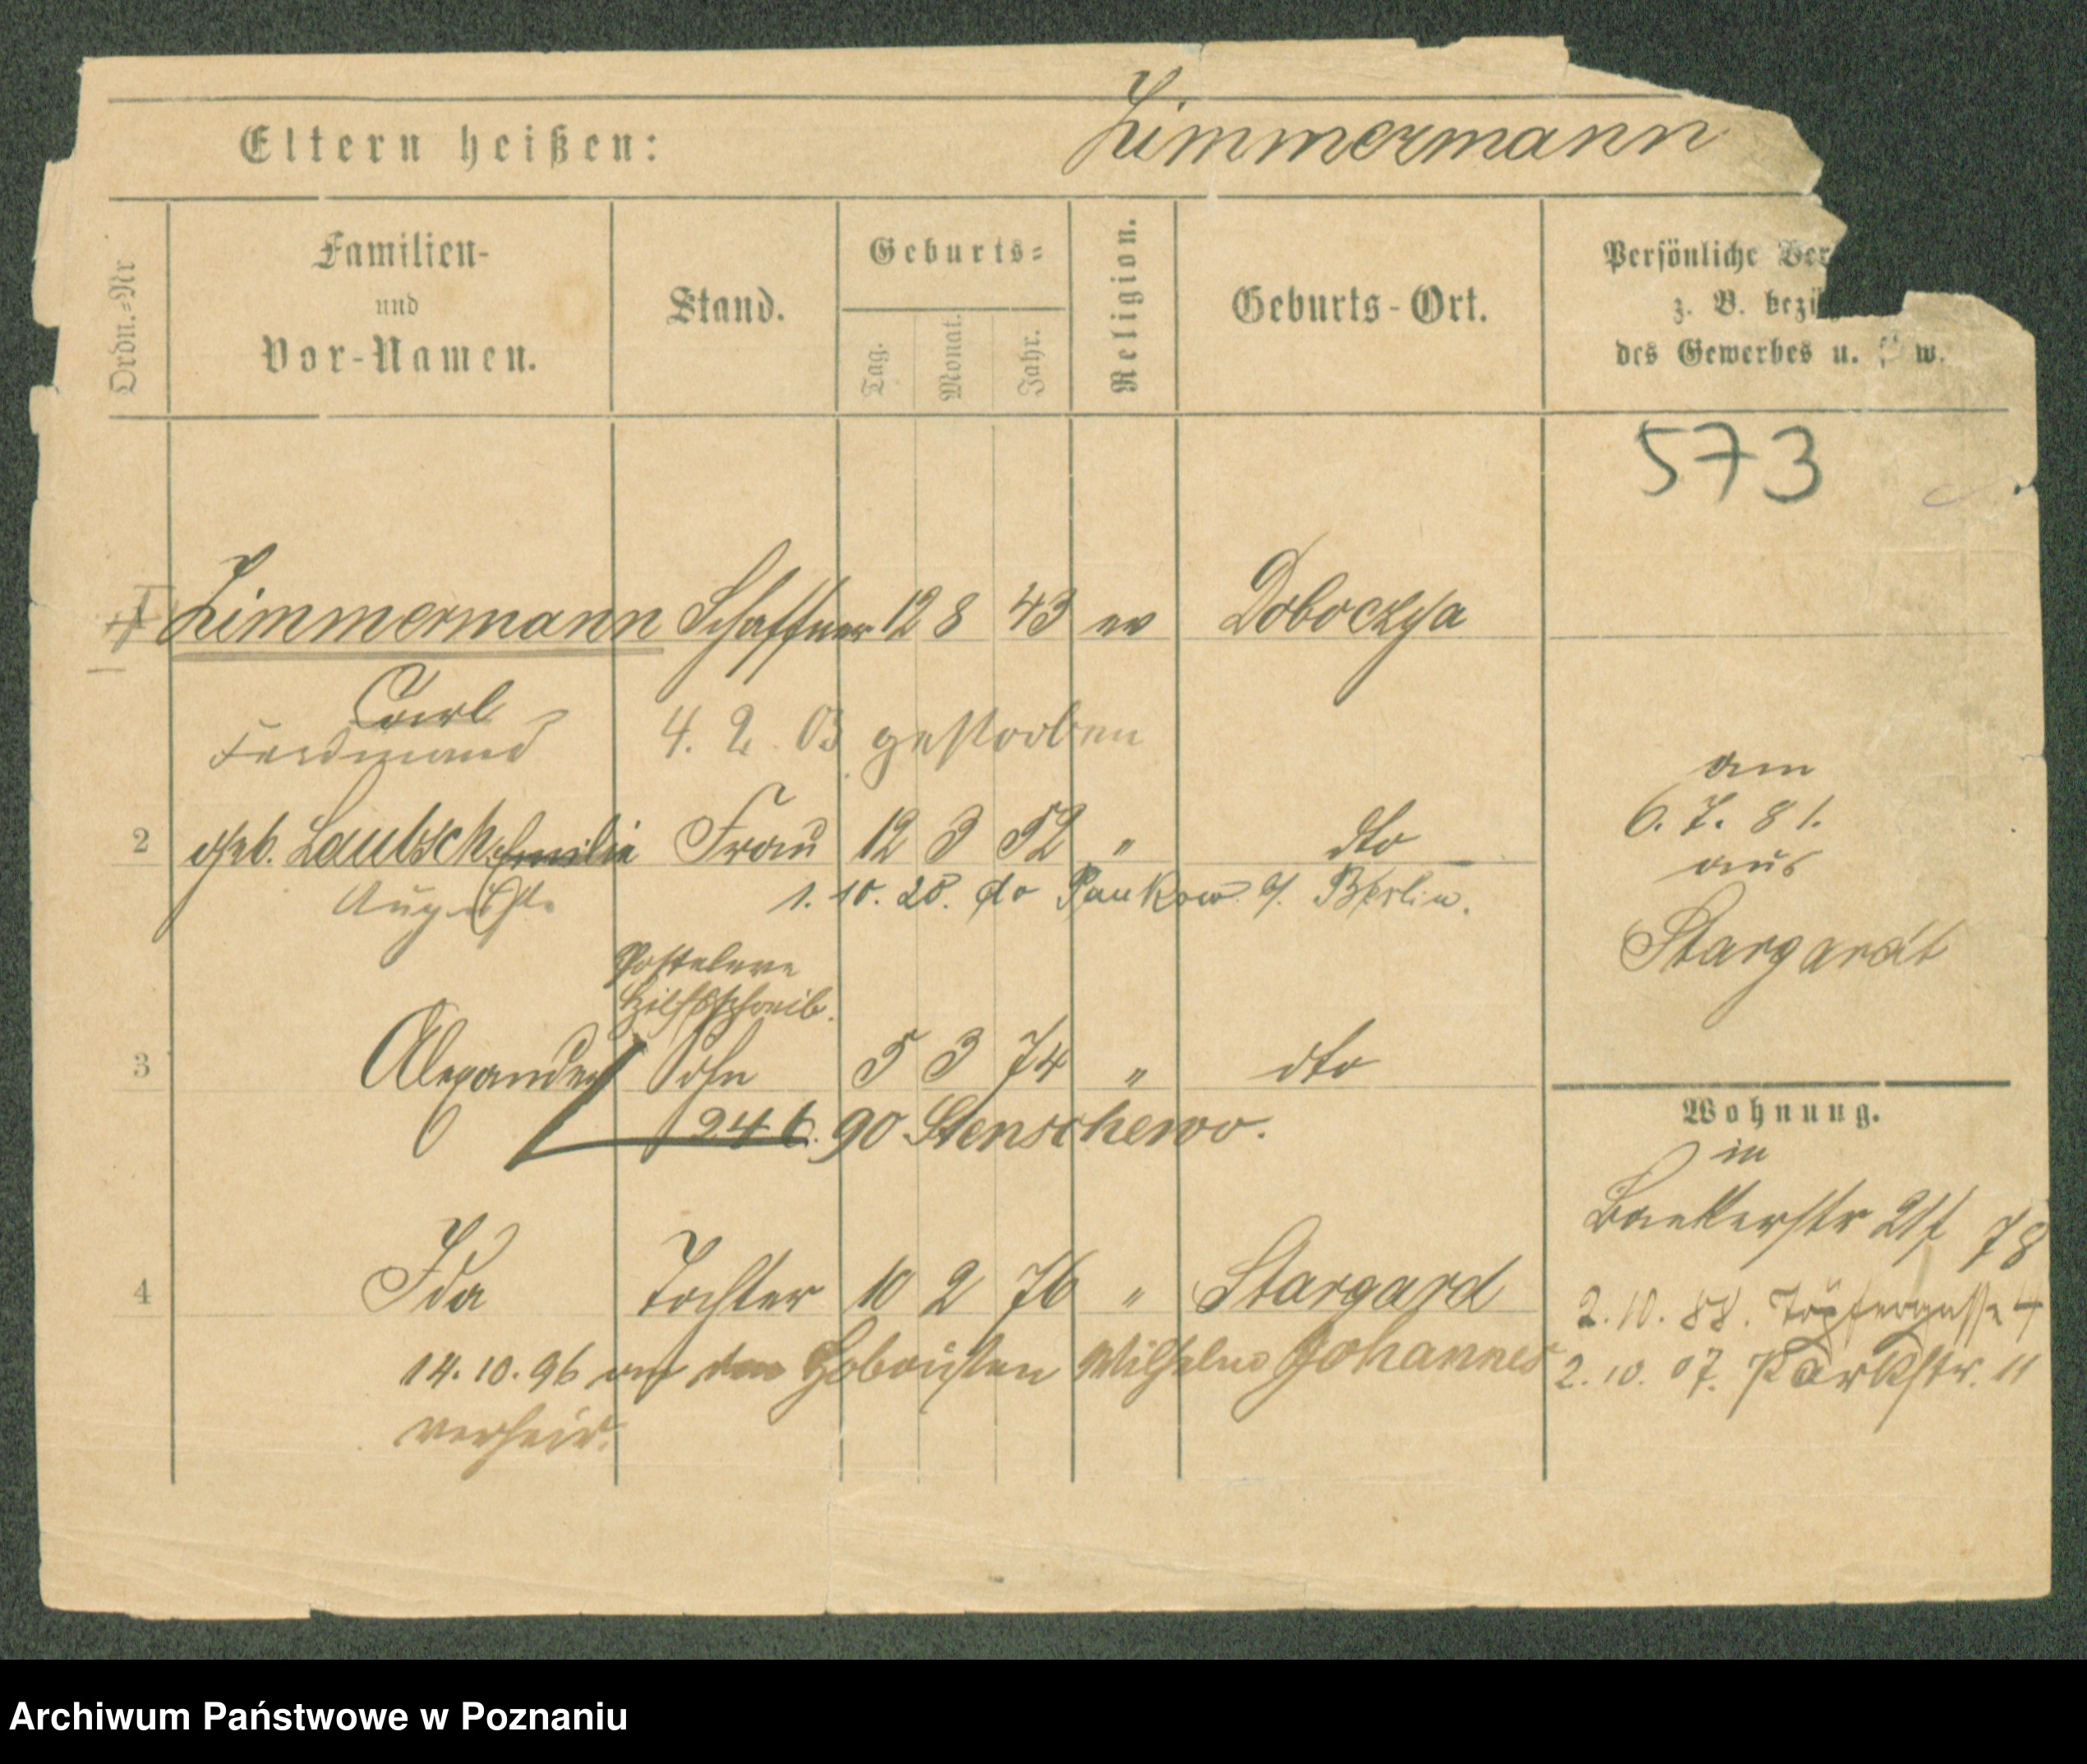 Zimmermann
Eltern heißen:
Ordn.=Nr
Familien-
und
Vor-Namen.
Stand.
Geburts=
Tag.
Monat.
Jahr.
Religion.
Geburts-Ort.
Persönliche Ver
z. B. bezü
des Gewerbes u. s w.
573
1 Zimmermann Schaffner 12 8 43 ev
Carl
Ferdinand 4. 2. 03 gestorben
am
6. 7. 81.
aus
Stargardt
2 geb. Lautsch Emilie Frau 12 3 52 " dto
Auguste 1. 10. 20. do Pankow b/. Berlin.
Posteleve
Hilfsschreib.
3 Alexander Sohn 5 3 74 " dto
24 6. 90 Stenschewo.
Wohnung.
in
78
4 Ida Tochter 10 2 76 " Stargard
2. 10. 88. Töpfergasse 4
14. 10. 96 an den Hoboisten Wilhelm Johannes
2. 10. 07. Parkstr. 11
verheir.
Archiwum Państwowe w Poznaniu